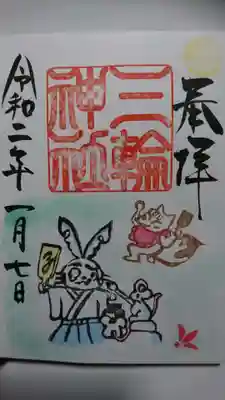 奉拝
三輪
神社
令和二年一月七日
子